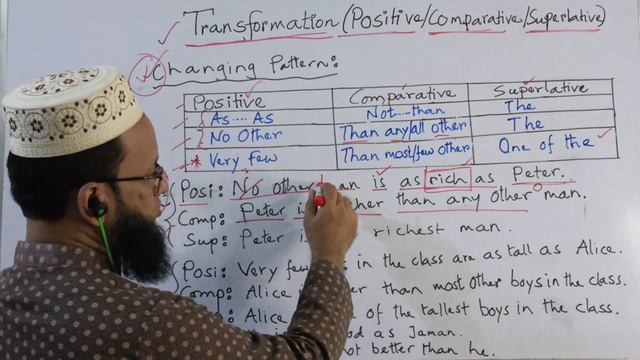 Transformation (Positive/Comparative/Superlative)
Changing Pattern:
Positive Comparative Superlative
As....As Not....than The
No Other Than any/all other The
Very few Than most/few other One of the
Posi: No other man is as rich as Peter.
Comp: Peter than any other man.
Sup: Peter richest man.
Posi: Very few in the class are as tall as Alice.
Comp: Alice than most other boys in the class.
Alice of the tallest boys in the class.
as Jaman.
not better than he.